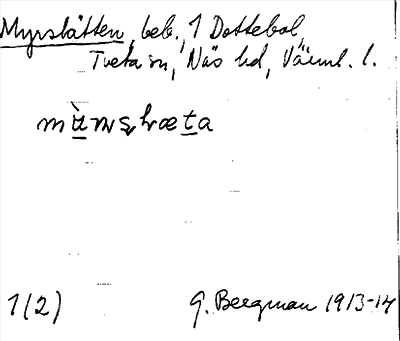 Myrslåtten, beb., 1 Dottebol,
Tveta sn, Näs hd, Värml. l.
1(2) G. Bergman 1913-14